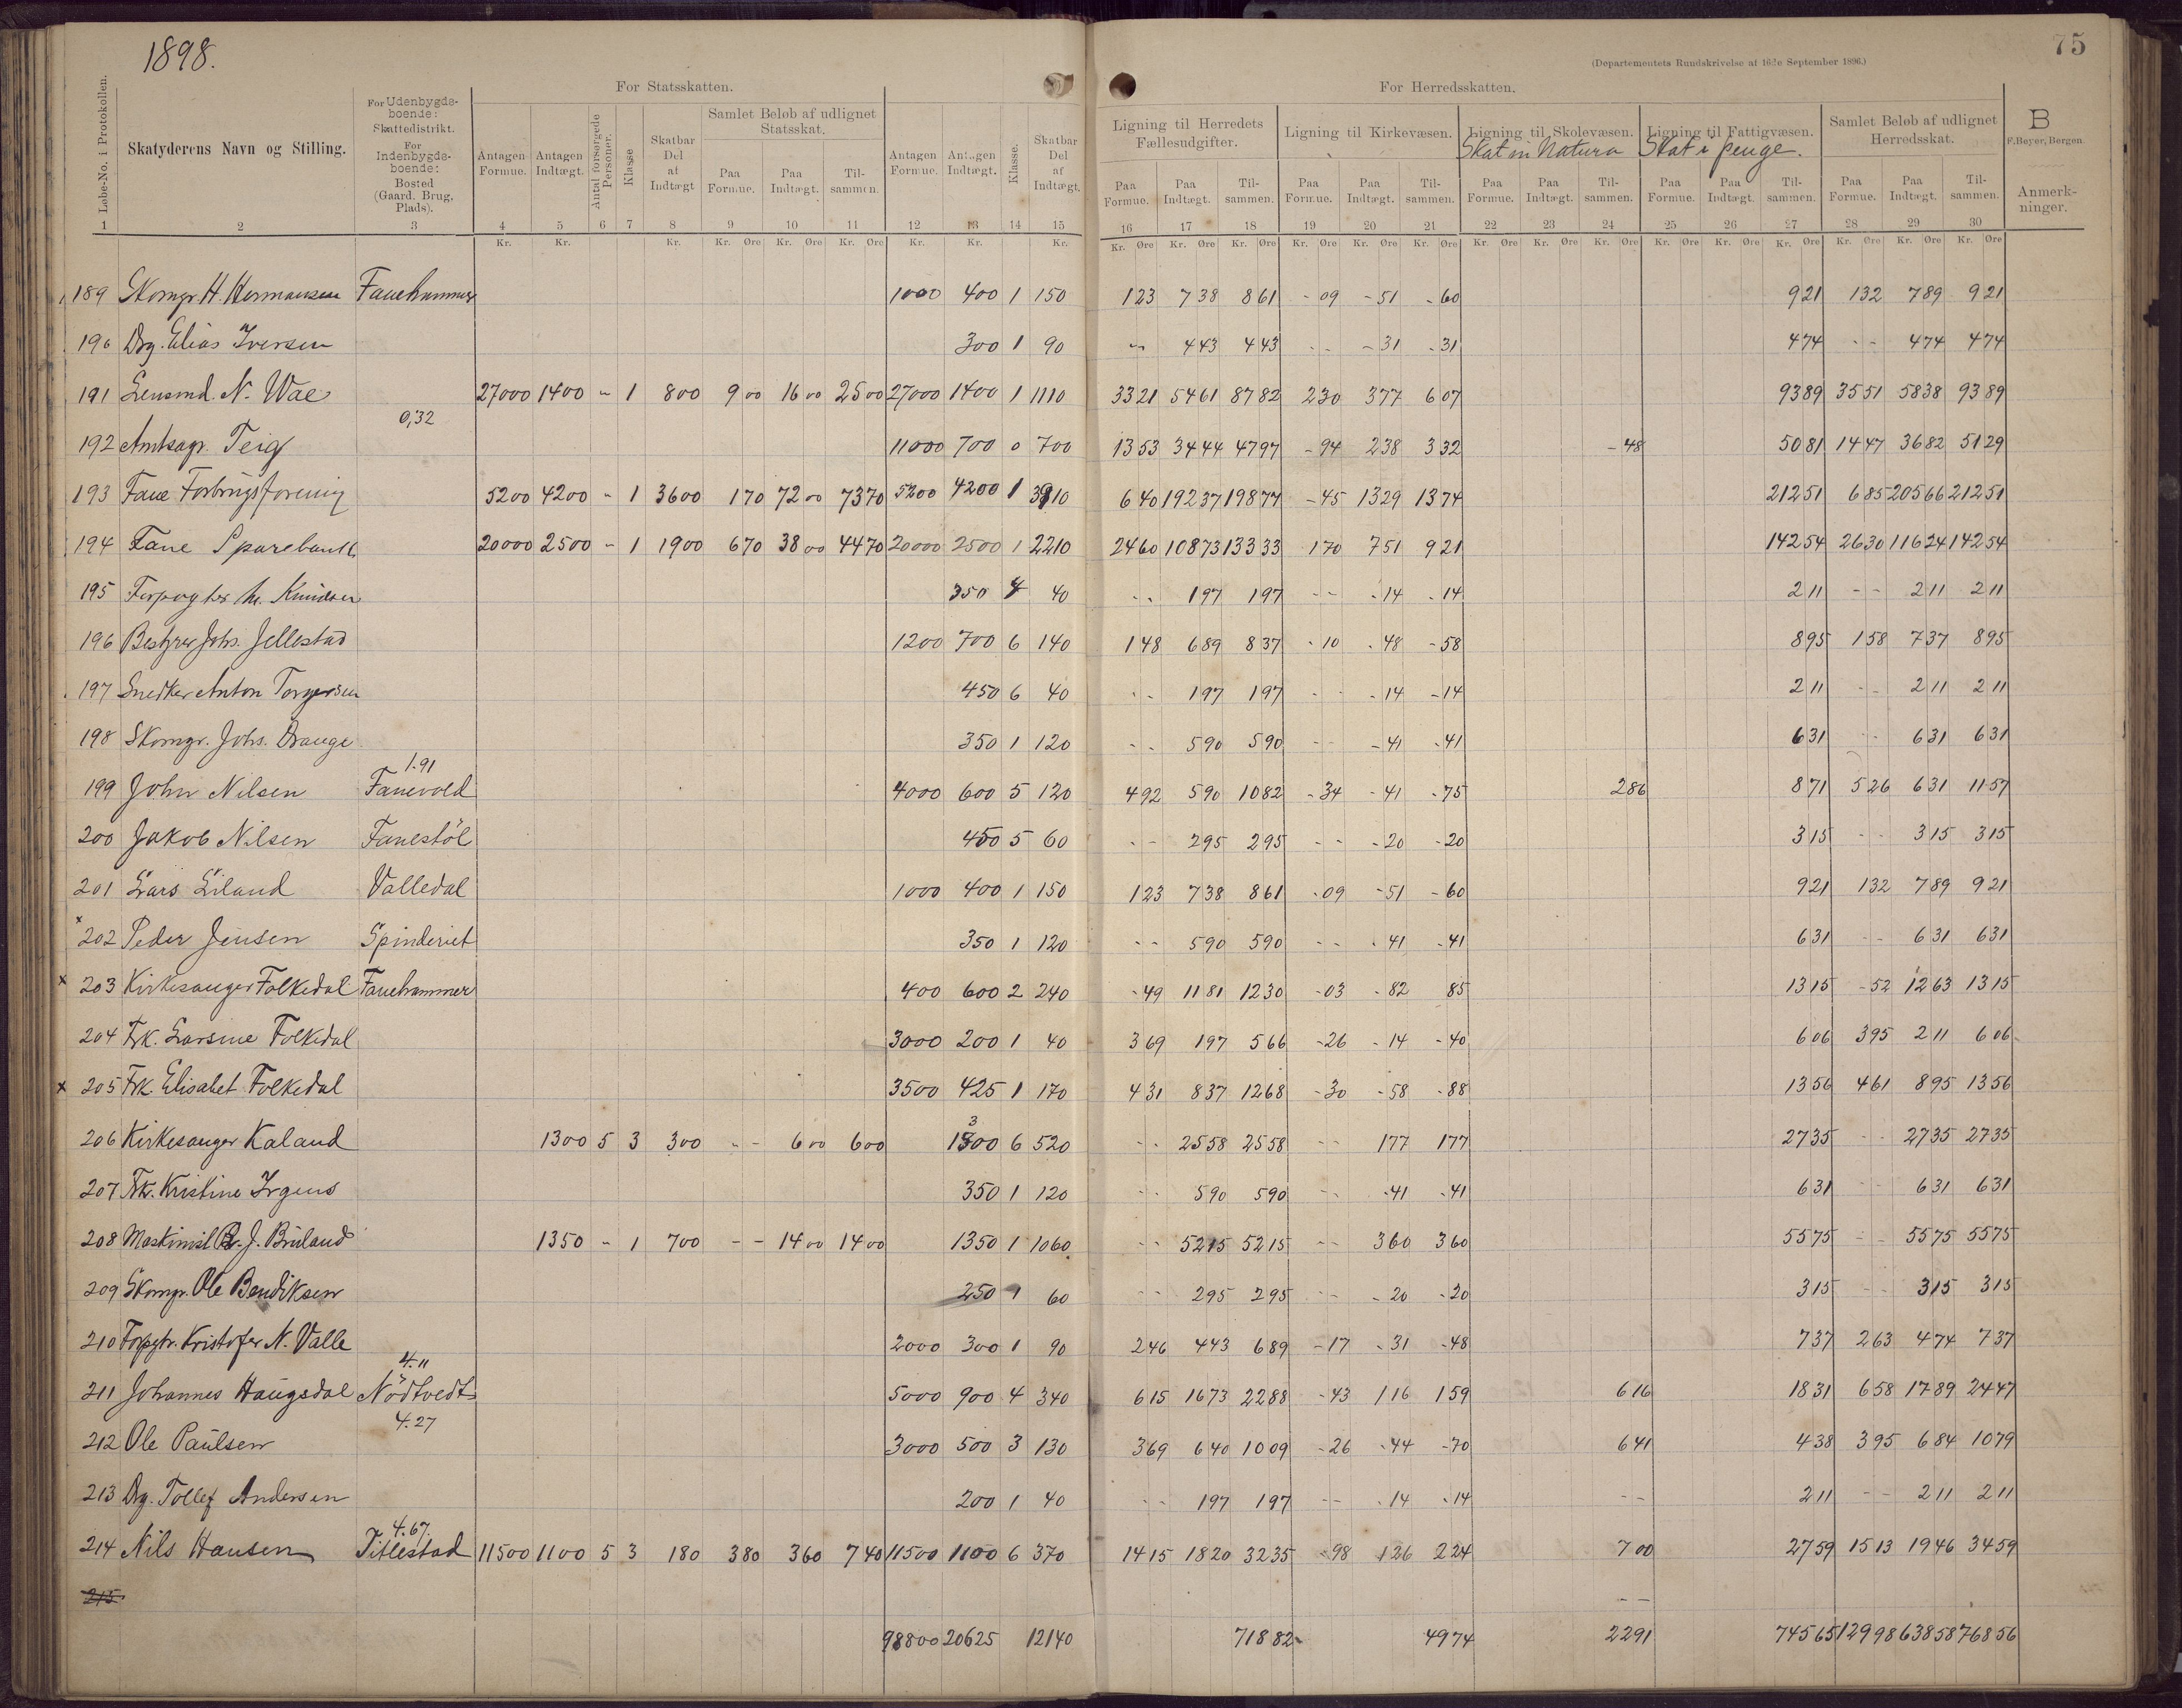 1898.
75
(Departementets Rundskrivelse af 16de September 1896.)
For Statsskatten.
For Herredsskatten.
B
F. Beyer, Bergen.
Løbe-No. i Protokollen.
Skatyderens Navn og Stilling.
For Udenbygdsboende: Skattedistrikt. For Indenbygdsboende: Bosted (Gaard, Brug, Plads).
Antagen Formue.
Antagen Indtægt.
Antal forsørgede Personer.
Klasse
Skatbar Del at Indtægt
Samlet Beløb af udlignet Statsskat.
Paa Formue. Paa Indtægt. Tilsammen.
Antagen Formue.
Antagen Indtægt.
Klasse.
Skatbar Del af Indtægt.
Ligning til Herredets Fællesudgifter.
Paa Formue. Paa Indtægt. Tilsammen.
Ligning til Kirkevæsen.
Paa Formue. Paa Indtægt. Tilsammen.
Ligning til Skolevæsen.
Skat in Natura
Paa Formue. Paa Indtægt. Tilsammen.
Ligning til Fattigvæsen.
Skat i penge.
Paa Formue. Paa Indtægt. Tilsammen.
Samlet Beløb af udlignet Herredsskat.
Paa Formue. Paa Indtægt. Tilsammen.
Anmerkninger.
1 2 3 4 5 6 7 8 9 10 11 12 13 14 15 16 17 18 19 20 21 22 23 24 25 26 27 28 29 30
Kr. Kr. Kr. Kr. Øre Kr. Øre Kr. Øre Kr. Kr. Kr. Kr. Øre Kr. Øre Kr. Øre Kr. Øre Kr. Øre Kr. Øre Kr. Øre Kr. Øre Kr. Øre Kr. Øre Kr. Øre Kr. Øre Kr. Øre Kr. Øre Kr. Øre
189 Skomgr. H. Hermansen Fanehammer 1000 400 1 150 123 738 861 -09 -51 -60 921 132 789 921
196 Drg. Elias Iversen 300 1 90 -- 443 443 -- -31 -31 474 -- 474 474
191 Lensmd. N. Wae 27000 1400 - 1 800 900 1600 2500 27000 1400 1 1110 3321 5461 8782 230 377 607 9389 3551 5838 9389
0,32
192 Amtsagr. Teig 11000 700 0 700 1353 3444 4797 -94 238 332 -48 5081 1447 3682 5129
193 Fane Forbrugsforening 5200 4200 - 1 3600 170 7200 7370 5200 4200 1 3910 640 19237 19877 -45 1329 1374 21251 685 20566 21251
194 Fane Sparebank 20000 2500 - 1 1900 670 3800 4470 20000 2500 1 2210 2460 10873 13333 170 751 921 14254 2630 11624 14254
195 Forpagter M. Knudsen 350 4 40 -- 197 197 -- -14 -14 211 -- 211 211
196 Bestyrer Johs. Jellestad 1200 700 6 140 148 689 837 -10 -48 -58 895 158 737 895
197 Snedker Anton Torgersen 450 6 40 -- 197 197 -- -14 -14 211 -- 211 211
198 Skomgr. Johs. Drange 350 1 120 -- 590 590 -- -41 -41 631 -- 631 631
1.91
199 John Nilsen Fanevold 4000 600 5 120 492 590 1082 -34 -41 -75 286 871 526 631 1157
200 Jakob Nilsen Fanestöl 450 5 60 -- 295 295 -- -20 -20 315 -- 315 315
201 Lars Liland Valledal 1000 400 1 150 123 738 861 -09 -51 -60 921 132 789 921
x 202 Peder Jensen Spinderiet 350 1 120 -- 590 590 -- -41 -41 631 -- 631 631
x 203 Kirkesanger Folkedal Fanehammer 400 600 2 240 -49 1181 1230 -03 -82 85 1315 -52 1263 1315
204 Frk. Larsine Folkedal 3000 200 1 40 369 197 566 -26 -14 -40 606 395 211 606
x 205 Frk. Elisabet Folkedal 3500 425 1 170 431 837 1268 -30 -58 -88 1356 461 895 1356
206 Kirkesanger Kaland 1300 5 3 300 -- 600 600 1300 6 520 -- 2558 2558 -- 177 177 2735 -- 2735 2735
207 Frk. Kristine Irgens 350 1 120 -- 590 590 -- -41 -41 631 -- 631 631
208 Maskinist J. Bruland 1350 - 1 700 -- 1400 1400 1350 1 1060 -- 5215 5215 -- 360 360 5575 -- 5575 5575
209 Skomgr. Ole Bendiksen 250 1 60 -- 295 295 -- -20 -20 315 -- 315 315
210 Forpgtr. Kristofer N. Valle 2000 300 1 90 246 443 689 -17 -31 -48 737 263 474 737
4.11
211 Johannes Haugsdal Nödtvedt 5000 900 4 340 615 1673 2288 -43 116 159 616 1831 658 1789 2447
4.27
212 Ole Paulsen 3000 500 3 130 369 640 1009 -26 -44 -70 641 438 395 684 1079
213 Drg. Tollef Andersen 200 1 40 -- 197 197 -- -14 -14 -- 211 -- 211 211
4.67.
214 Nils Hansen Titlestad 11500 1100 5 3 180 380 360 740 11500 1100 6 370 1415 1820 3235 -98 126 224 700 2759 1513 1946 3459
215 --
98800 20625 12140 71882 4974 2291 74565 12998 63858 76856